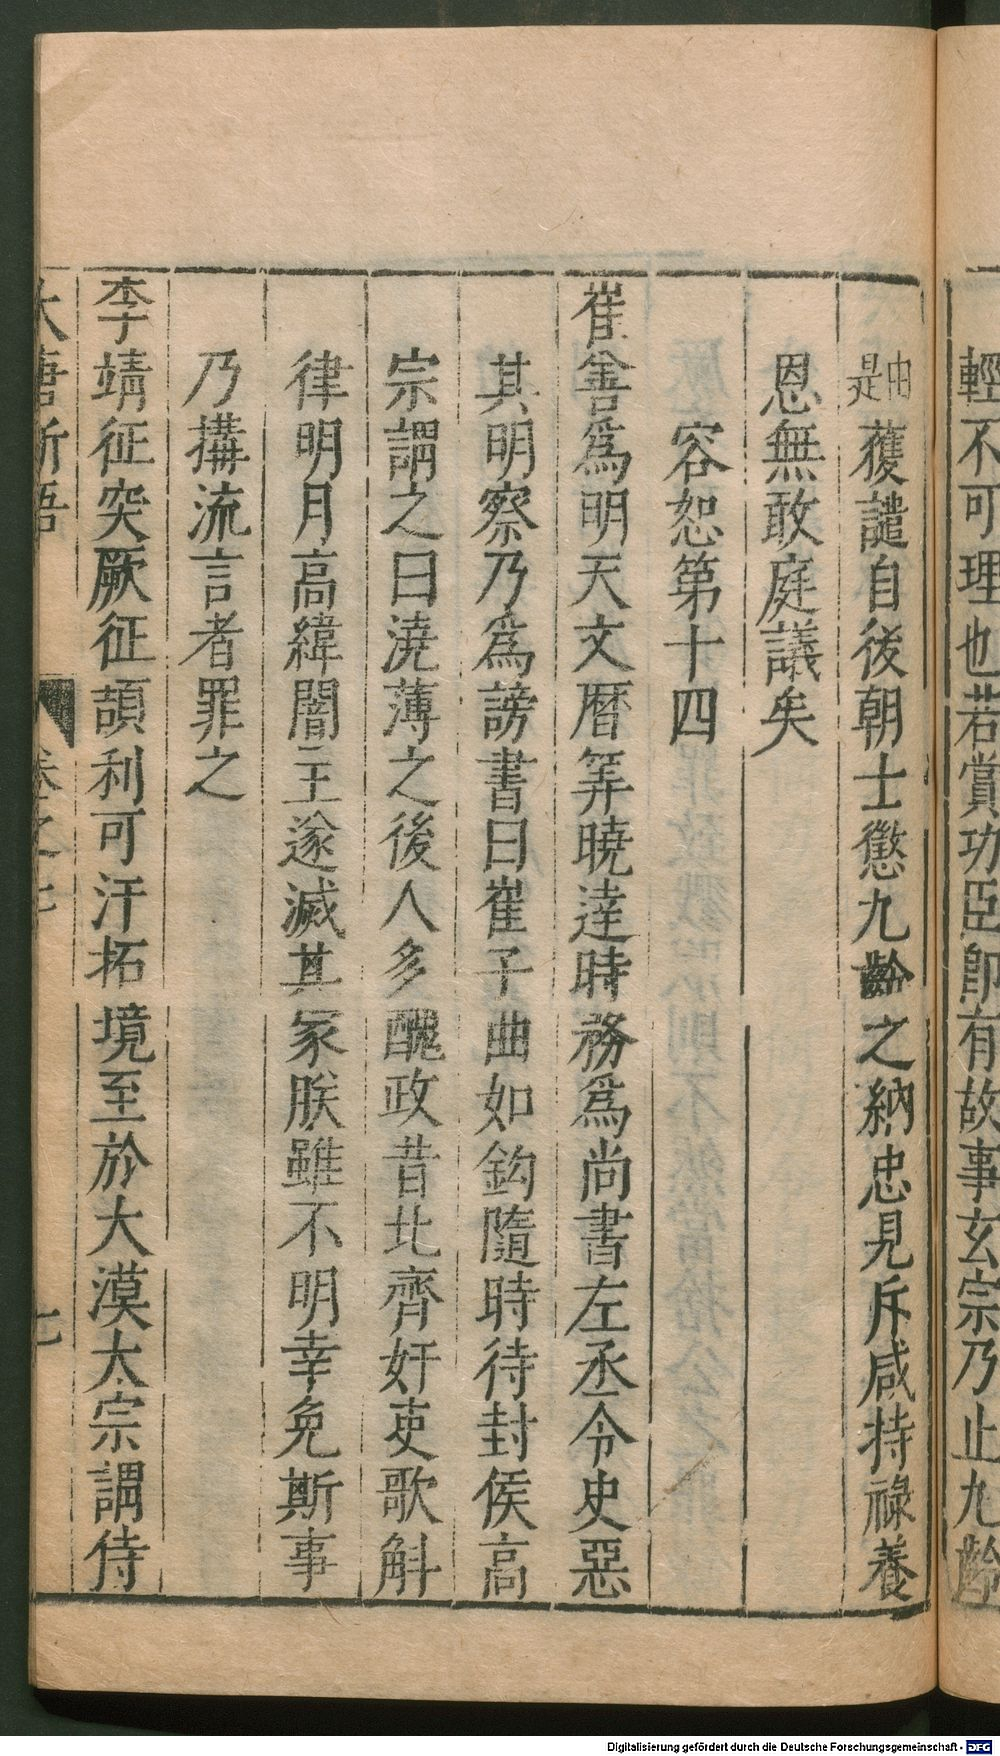 輕不可理也若賞功臣卽有故事玄宗乃止九齡
由是獲譴自後朝士懲九齡之納忠見斥咸持祿養
恩無敢庭議矣
容恕第十四
崔善爲明天文曆筭曉達時務爲尚書左丞令史惡
其明察乃爲謗書曰崔子曲如鈎隨時待封侯高
宗謂之曰澆薄之後人多醜政昔北齊奸吏歌斛
律明月高緯闇主遂滅其家朕雖不明幸免斯事
乃搆流言者罪之
李靖征突厥征頡利可汗拓境至於大漠太宗謂侍
大唐新語 卷之七 七
Digitalisierung gefördert durch die Deutsche Forschungsgemeinschaft - DFG